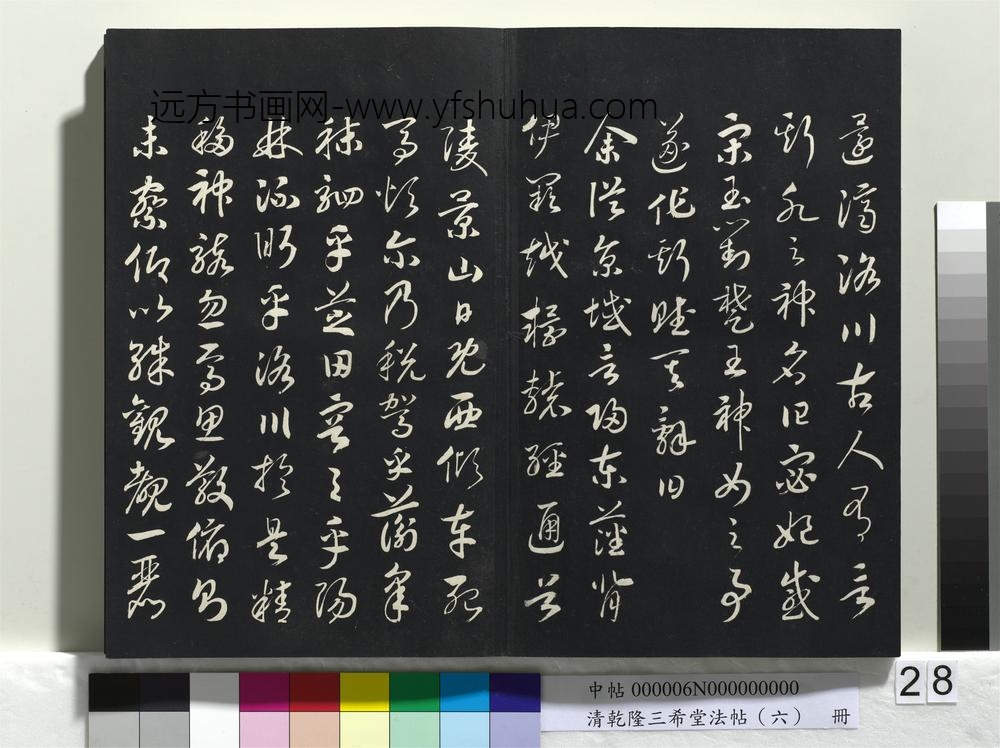 远方书画网-www.yfshuhua.com
還濟洛川古人有言
斯水之神名曰宓妃感
宋玉對楚王神女之事
遂作斯賦其辭曰
余從京域言歸東藩背
伊闕越轘轅經通谷
陵景山日既西傾車殆
馬煩尔乃税駕乎蘅皋
秣駟乎芝田容與乎陽
林流眄乎洛川於是精
移神駭忽焉思散俯則
未察仰以殊觀覩一麗
中帖 000006N000000000
清乾隆三希堂法帖（六） 冊
28